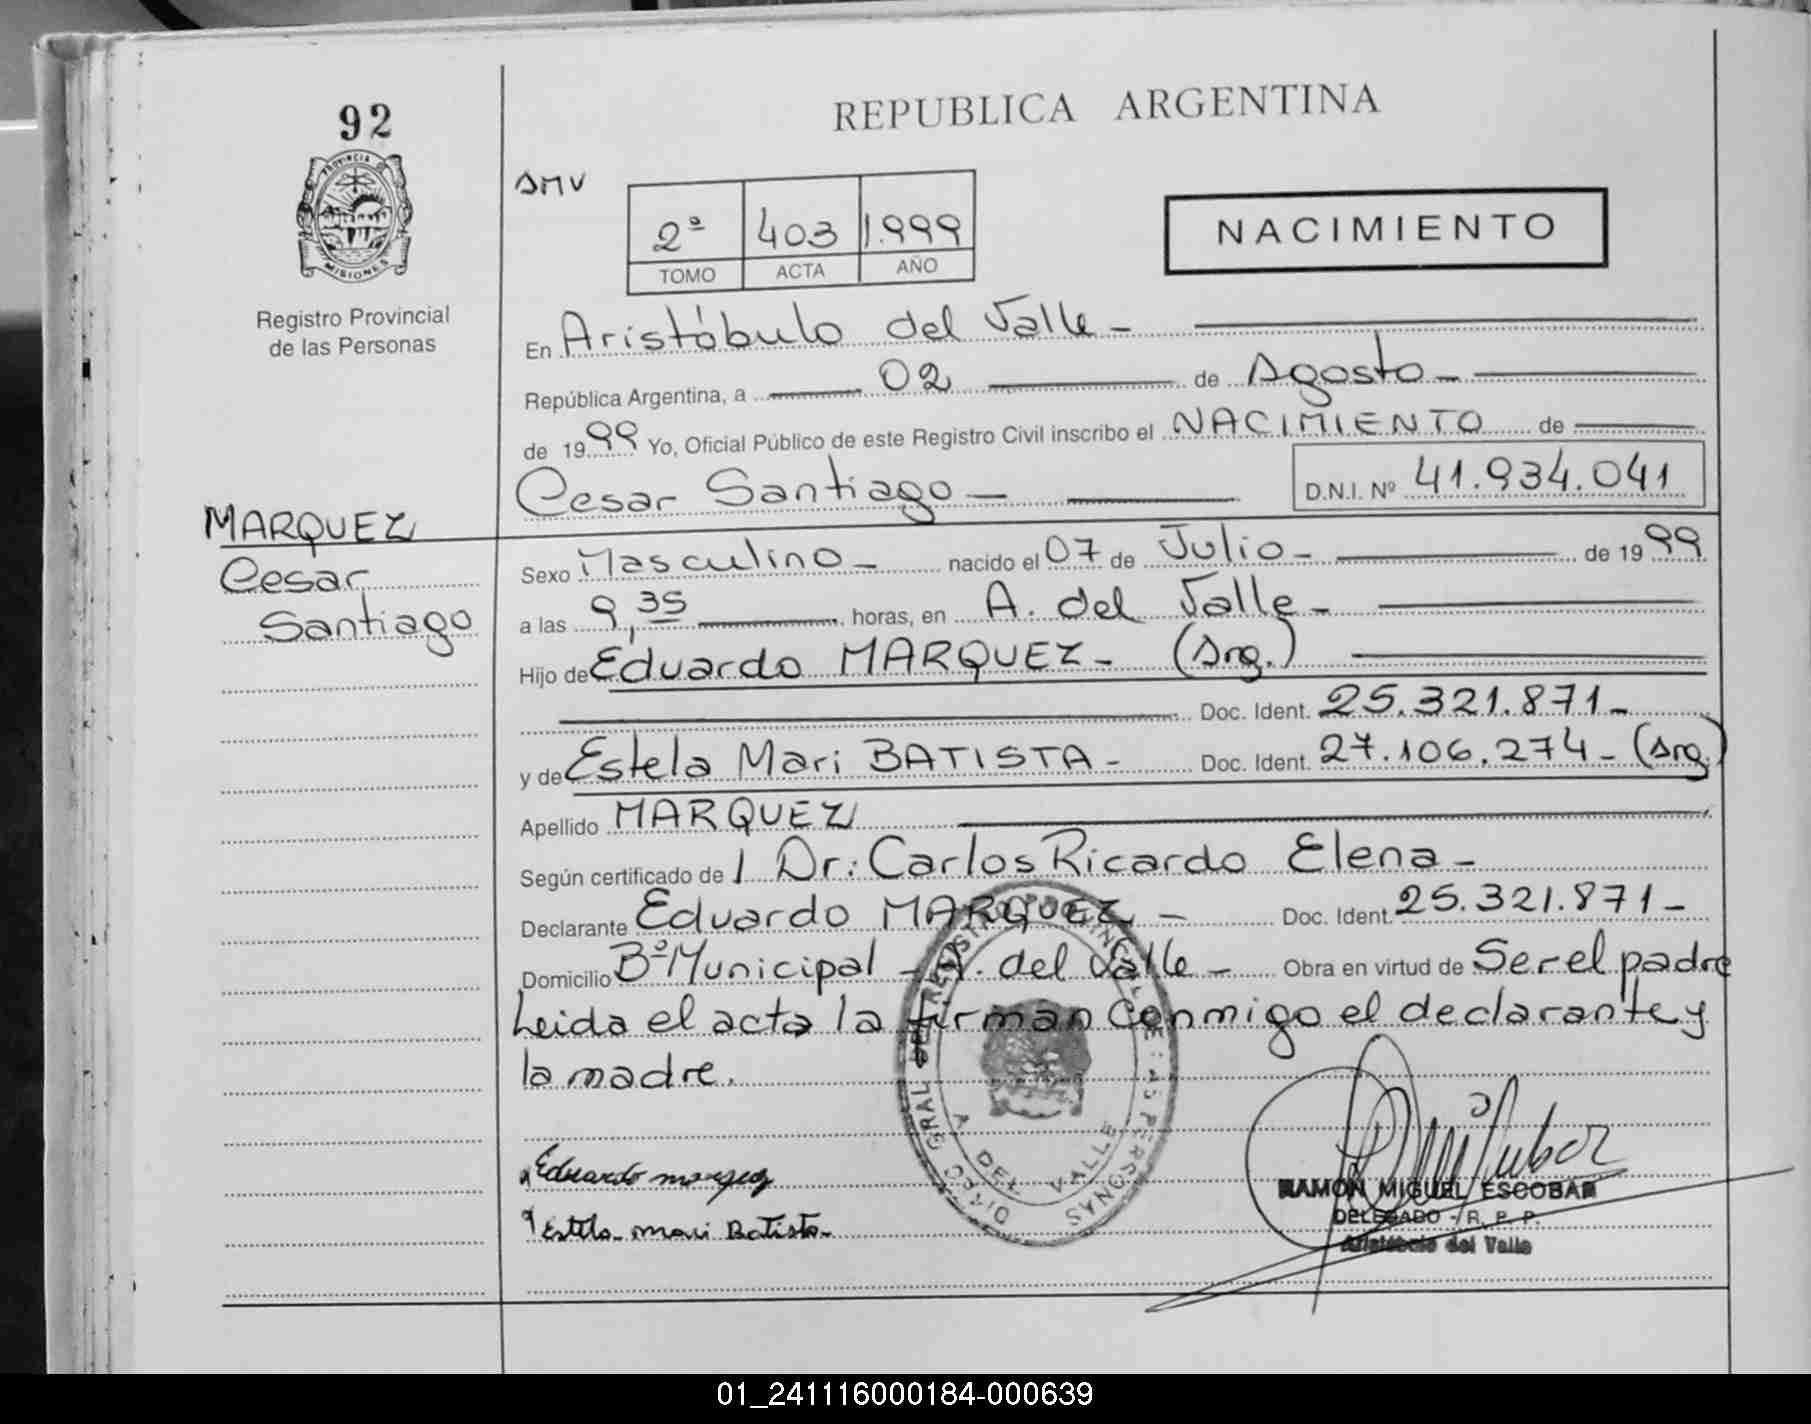 92
PROVINCIA
MISIONES
Registro Provincial
de las Personas
REPUBLICA ARGENTINA
2ª 403 1.999
TOMO ACTA AÑO
NACIMIENTO
En Aristóbulo del Valle -
República Argentina, a 02 de Agosto -
de 1999 Yo, Oficial Público de este Registro Civil inscribo el NACIMIENTO de
Cesar Santiago - D.N.I. Nº 41.934.041
MARQUEZ
Cesar
Santiago
Sexo Masculino - nacido el 07 de Julio - de 1999
a las 9,35 horas, en A. del Valle -
Hijo de Eduardo MARQUEZ - (Arg.)
Doc. Ident. 25.321.871 -
y de Estela Mari BATISTA - Doc. Ident. 27.106.274 - (Arg.)
Apellido MARQUEZ
Según certificado de / Dr: Carlos Ricardo Elena -
Declarante Eduardo MARQUEZ - Doc. Ident. 25.321.871 -
Domicilio Bº Municipal - A. del Valle - Obra en virtud de Ser el padre
Leida el acta la firman conmigo el declarante y
la madre.
DIREC GRAL DEL REGISTRO PROVINCIAL DE LAS PERSONAS
A DEL VALLE
Eduardo marquez
Estela mari Batista
RAMON MIGUEL ESCOBAR
DELEGADO - R. P. P.
Aristóbulo del Valle
01_241116000184-000639